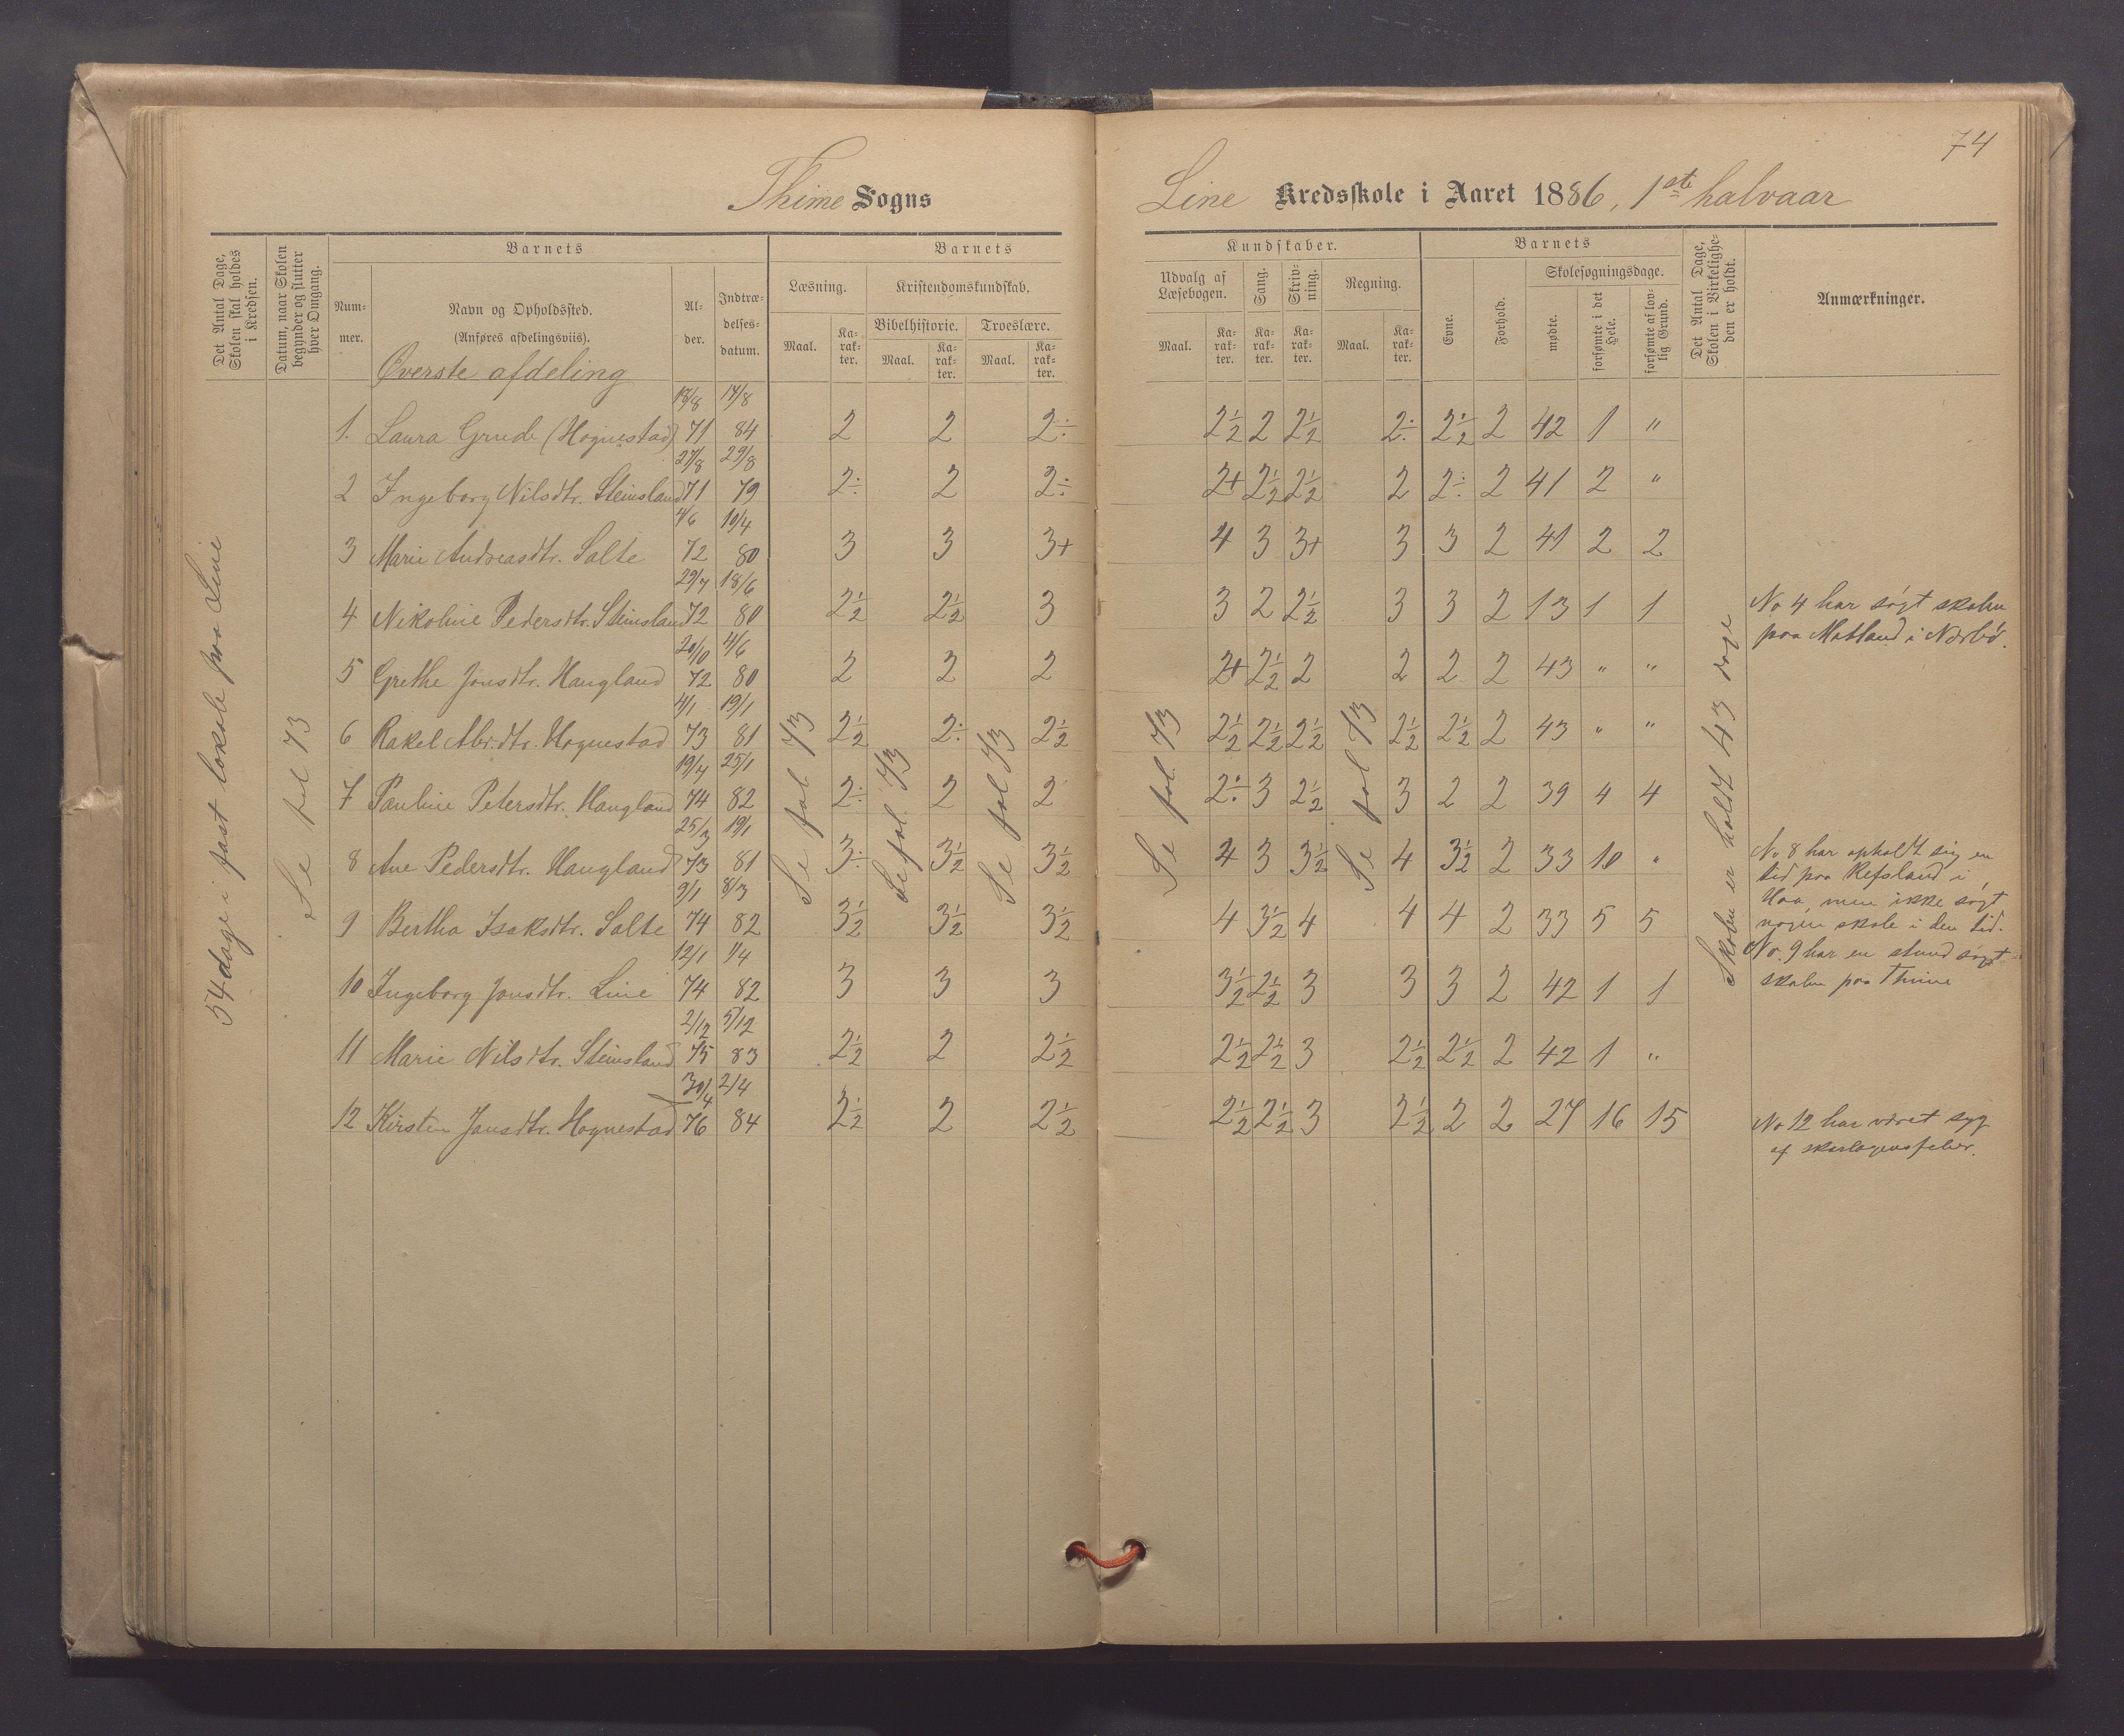 74
Thime Sogns
Line Kredsskole i Aaret 1886, 1ste halvaar
Det Antal Dage, Skolen skal holdes i Kredsen.
Datum, naar Skolen begynder og slutter hver Omgang.
Barnets
Nummer.
Navn og Opholdssted.
(Anføres afdelingsviis).
Alder.
Indtrædelsesdatum.
Barnets
Læsning.
Maal.
Karakter.
Kristendomskundskab.
Bibelhistorie.
Maal.
Karakter.
Troeslære.
Maal.
Karakter.
Kundskaber.
Udvalg af Læsebogen.
Maal.
Karakter.
Sang.
Karakter.
Skrivning.
Karakter.
Regning.
Maal.
Karakter.
Barnets
Evne.
Forhold.
Skolesøgningsdage.
mødte.
forsømte i det Hele.
forsømte af lovlig Grund.
Det Antal Dage, Skolen i Virkeligheden er holdt.
Anmærkninger.
54 dage i fast lokale paa Line
Se fol 73
Øverste afdeling
1. Laura Grude (Hognestad) 18/8 71 17/8 84 2 2 2÷ 2½ 2 2½ 2÷ 2½ 2 42 1 "
2 Ingeborg Nilsdtr. Steinsland 27/8 71 29/8 79 2÷ 2 2÷ 2+ 2½ 2½ 2 2÷ 2 41 2 "
3 Marie Andreasdtr. Salte 4/6 72 10/4 80 3 3 3+ 4 3 3+ 3 3 2 41 2 2
4 Nikoline Pedersdtr. Steinsland 29/7 72 18/6 80 2½ 2½ 3 3 2 2½ 3 3 2 13 1 1
5 Grethe Jonsdtr. Haugland 20/10 72 4/6 80 2 2 2 2+ 2½ 2 2 2 2 43 " "
6 Rakel Abr.dtr. Hognestad 4/1 73 19/1 81 2½ 2÷ 2½ 2½ 2½ 2½ 2½ 2½ 2 43 " "
7 Pauline Petersdtr. Haugland 19/7 74 25/1 82 2÷ 2 2 2÷ 3 2½ 3 2 2 39 4 4
8 Ane Pedersdtr. Haugland 25/3 73 19/1 81 3÷ 3½ 3½ 4 3 3½ 4 3½ 2 33 10 "
9 Bertha Isaksdtr. Salte 9/1 74 8/3 82 3½ 3½ 3½ 4 3½ 4 4 4 2 33 5 5
10 Ingeborg Jonsdtr. Line 12/1 74 1/4 82 3 3 3 3½ 2½ 3 3 3 2 42 1 1
11 Marie Nilsdtr. Steinsland 2/12 75 5/12 83 2½ 2 2½ 2½ 2½ 3 2½ 2½ 2 42 1 "
12 Kirsten Jonsdtr. Hognestad 30/4 76 2/4 84 2½ 2 2½ 2½ 2½ 3 2½ 2 2 27 16 15
Se fol. 73
Se fol. 73
Se fol 73
Se fol. 73
Se fol 73
Skolen er holdt 43 dage
No 4 har søgt skolen
paa Motland i Nærbø.
No 8 har opholdt sig en
tid paa Refsland i
Haa, men ikke søgt
nogen skole i den tid.
No. 9 har en stund søgt
skolen paa Thime
No 12 har været syg
af skarlagensfeber.